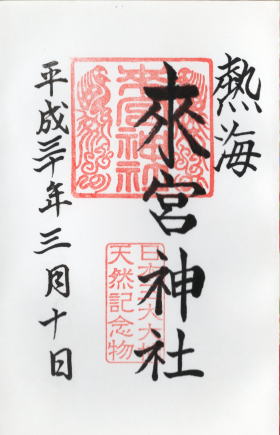 熱海
來宮神社
平成三十年三月十日
來宮神社
日本三大大楠
天然記念物